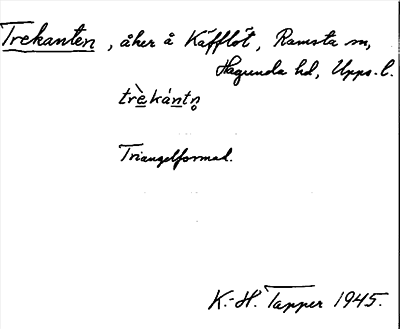 Trekanten, åker å Käfflöt, Ramsta sn,
Hagunda hd, Upps. l.
trèkántn̥
Triangelformad.
K.-H. Tapper 1945.